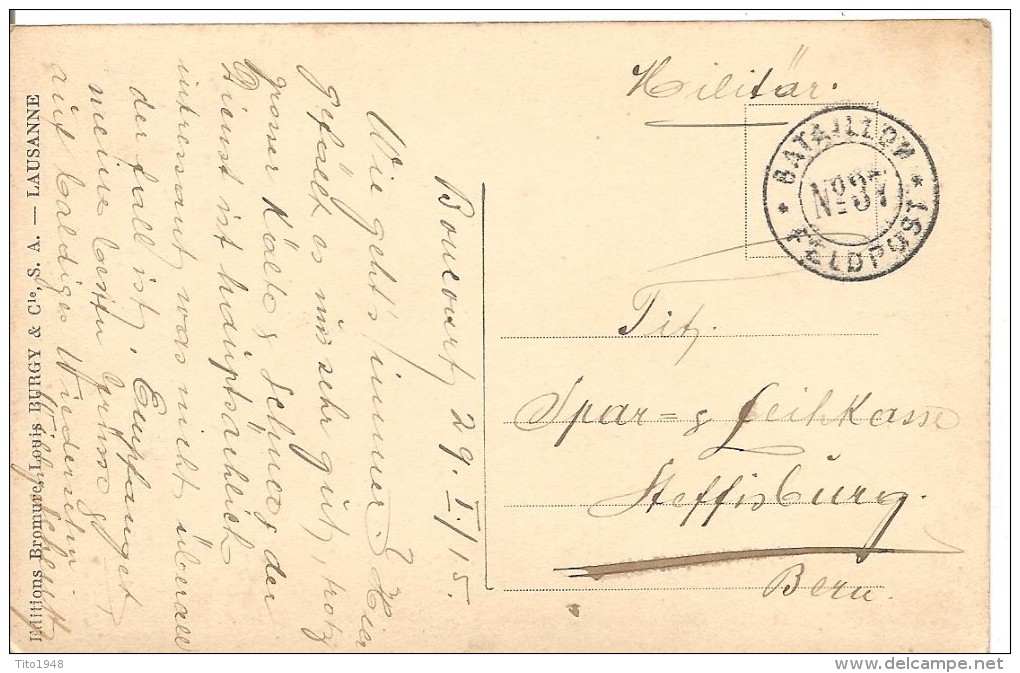 Militär.
BATAILLON
No. 37
FELDPOST
Tit.
Spar= & Leihkasse
Steffisburg.
Bern.
Boncourt, 29. I. 15.
Wie geht's immer? Hier
gefällt es uns sehr gut, trotz
grosser Kälte & Schnee, der
Dienst ist hauptsächlich
intressant was nicht überall
der Fall ist. Empfanget
meine besten Grüsse &
auf baldiges Wiedersehn
Editions Bromure, Louis BURGY & Cie, S. A. — LAUSANNE
Tito1948
www.delcampe.net